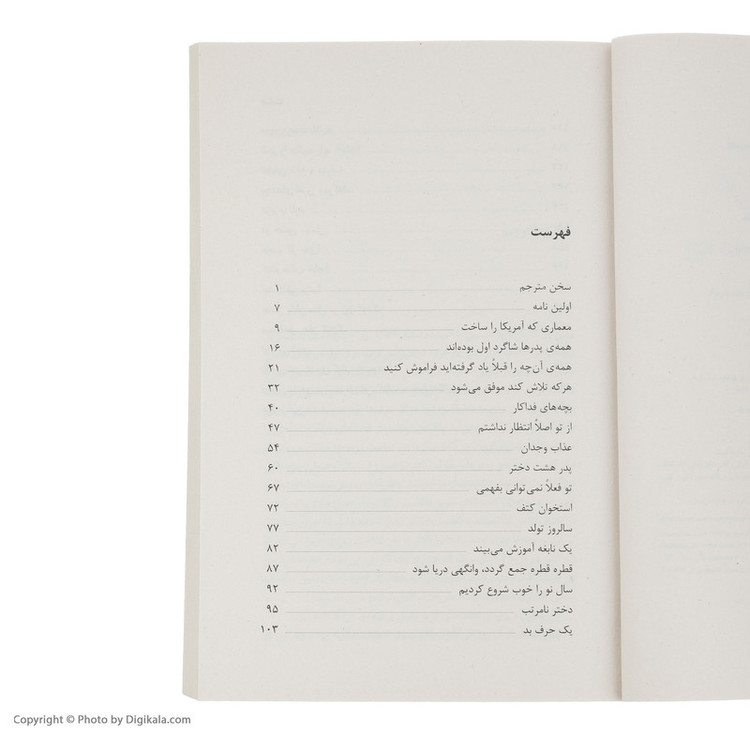 فهرست
سخن مترجم ۱
اولین نامه ۷
معماری که آمریکا را ساخت ۹
همه‌ی پدرها شاگرد اول بوده‌اند ۱۶
همه‌ی آن‌چه را قبلاً یاد گرفته‌اید فراموش کنید ۲۱
هرکه تلاش کند موفق می‌شود ۳۲
بچه‌های فداکار ۴۰
از تو اصلاً انتظار نداشتم ۴۷
عذاب وجدان ۵۴
پدر هشت دختر ۶۰
تو فعلاً نمی‌توانی بفهمی ۶۷
استخوان کتف ۷۲
سالروز تولد ۷۷
یک نابغه آموزش می‌بیند ۸۲
قطره قطره جمع گردد، وانگهی دریا شود ۸۷
سال نو را خوب شروع کردیم ۹۲
دختر نامرتب ۹۵
یک حرف بد ۱۰۳
Copyright © Photo by Digikala.com